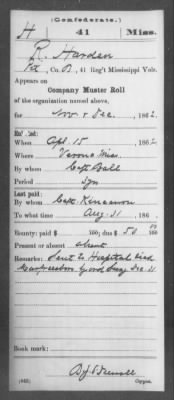 (Confederate.)
H 41 Miss.
R. Harden
Pvt, Co. B, 41 Reg't Mississippi Vols.
Appears on
Company Muster Roll
of the organization named above,
for Nov & Dec, 1862.
Enlisted:
When Apl. 15, 1862
Where Verona Miss.
By whom Capt Ball
Period 3yrs
Last paid:
By whom Capt. Kincannon
To what time Aug. 31, 186
Bounty: paid $ 100; due $ 50 100
Present or absent absent
Remarks: Sent to Hospital sick
Murfreesboro Dec 31
Book mark:
(642) Copyist.